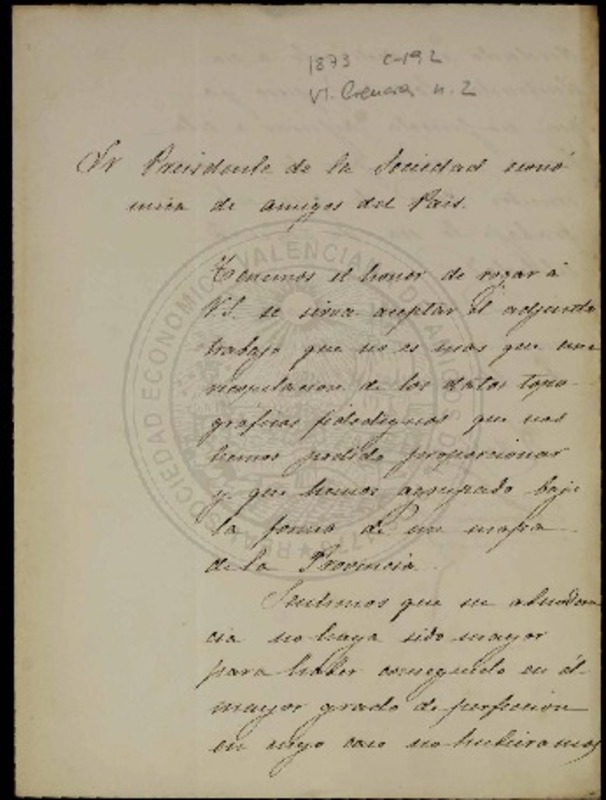 1873 C-192
VI. Ciencias n. 2
Sr Presidente de la Sociedad econó
mica de amigos del Pais.
Tenemos el honor de rogar á
V.S. se sirva aceptar el adjunto
trabajo que no es mas que una
recopilacion de los datos topo-
gráficos fidedignos que nos
hemos podido proporcionar
y que hemos agrupado bajo
la forma de un mapa
de la Provincia.
Sentimos que su abundan
cia no haya sido mayor
para haber conseguido en él
mayor grado de perfeccion
en cuyo caso no hubieramos
REAL SOCIEDAD ECONOMICA VALENCIANA DE AMIGOS DEL PAIS
1776